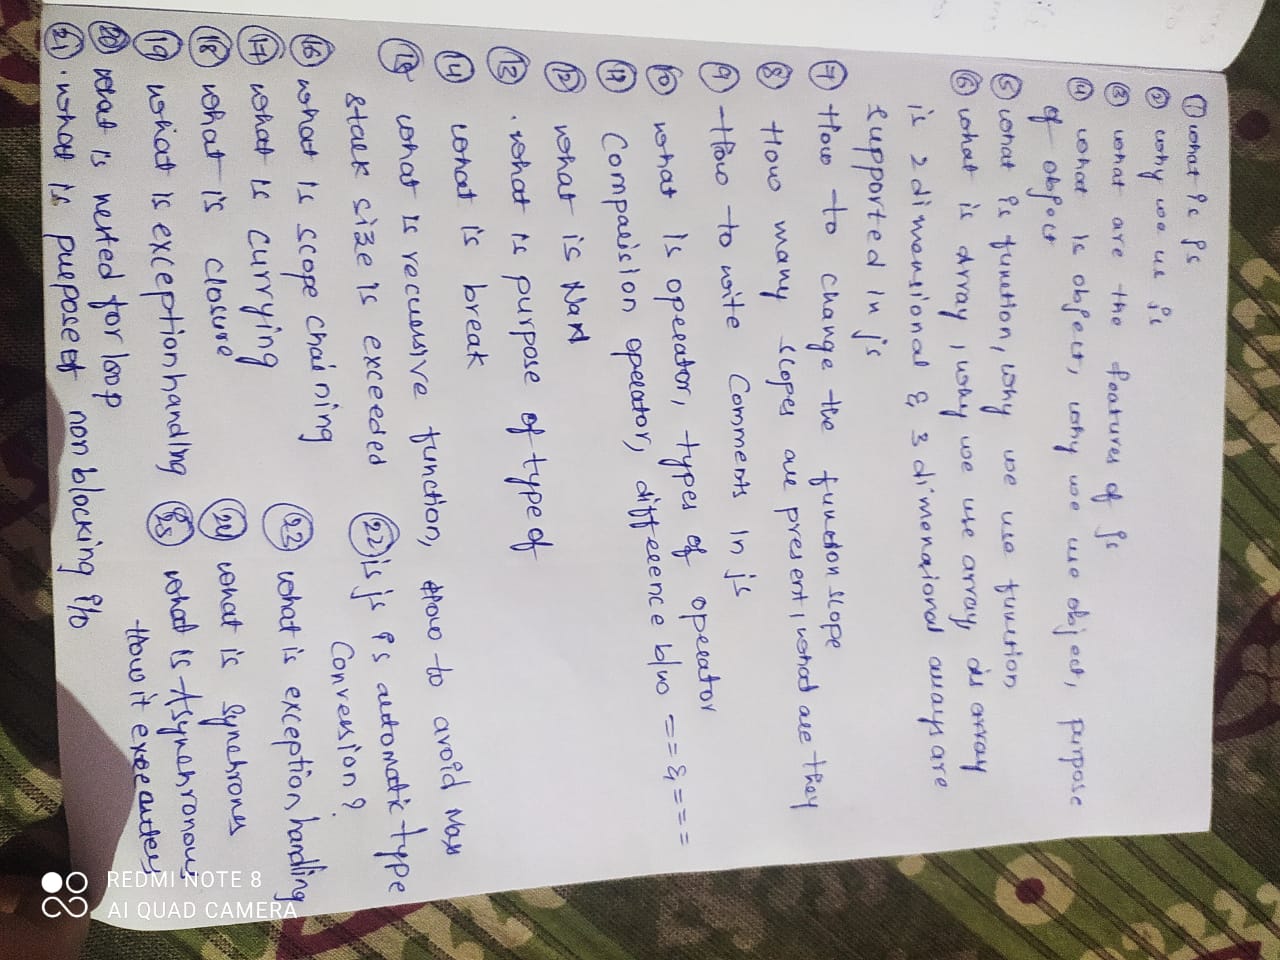 ① what is js
② why we us js
③ what are the features of js
④ what is object, why we use object, purpose
of object
⑤ what is function, why we use function
⑥ what is Array, why we use array, is array
is 2 dimensional & 3 dimensional arrays are
supported in js
⑦ How to change the function scope
⑧ How many scopes are present, what are they
⑨ How to write Comments In js
⑩ what Is operator, types of operator
⑪ Comparision operator, difference b/w == & ===
⑫ what is NaN
⑬ . what is purpose of type of
⑭ what is break
⑮ what is recursive function, How to avoid Max
stack size is exceeded
⑯ what Is scope chaining
⑰ what is currying
⑱ what is closure
⑲ what is exception handling
⑳ what is nested for loop
㉑ . what is purpose of non blocking i/o
㉒ is js is automatic type
Conversion ?
㉓ what is exception handling
㉔ what is Synchrones
㉕ what is Asynchronous
How it executes
REDMI NOTE 8
AI QUAD CAMERA